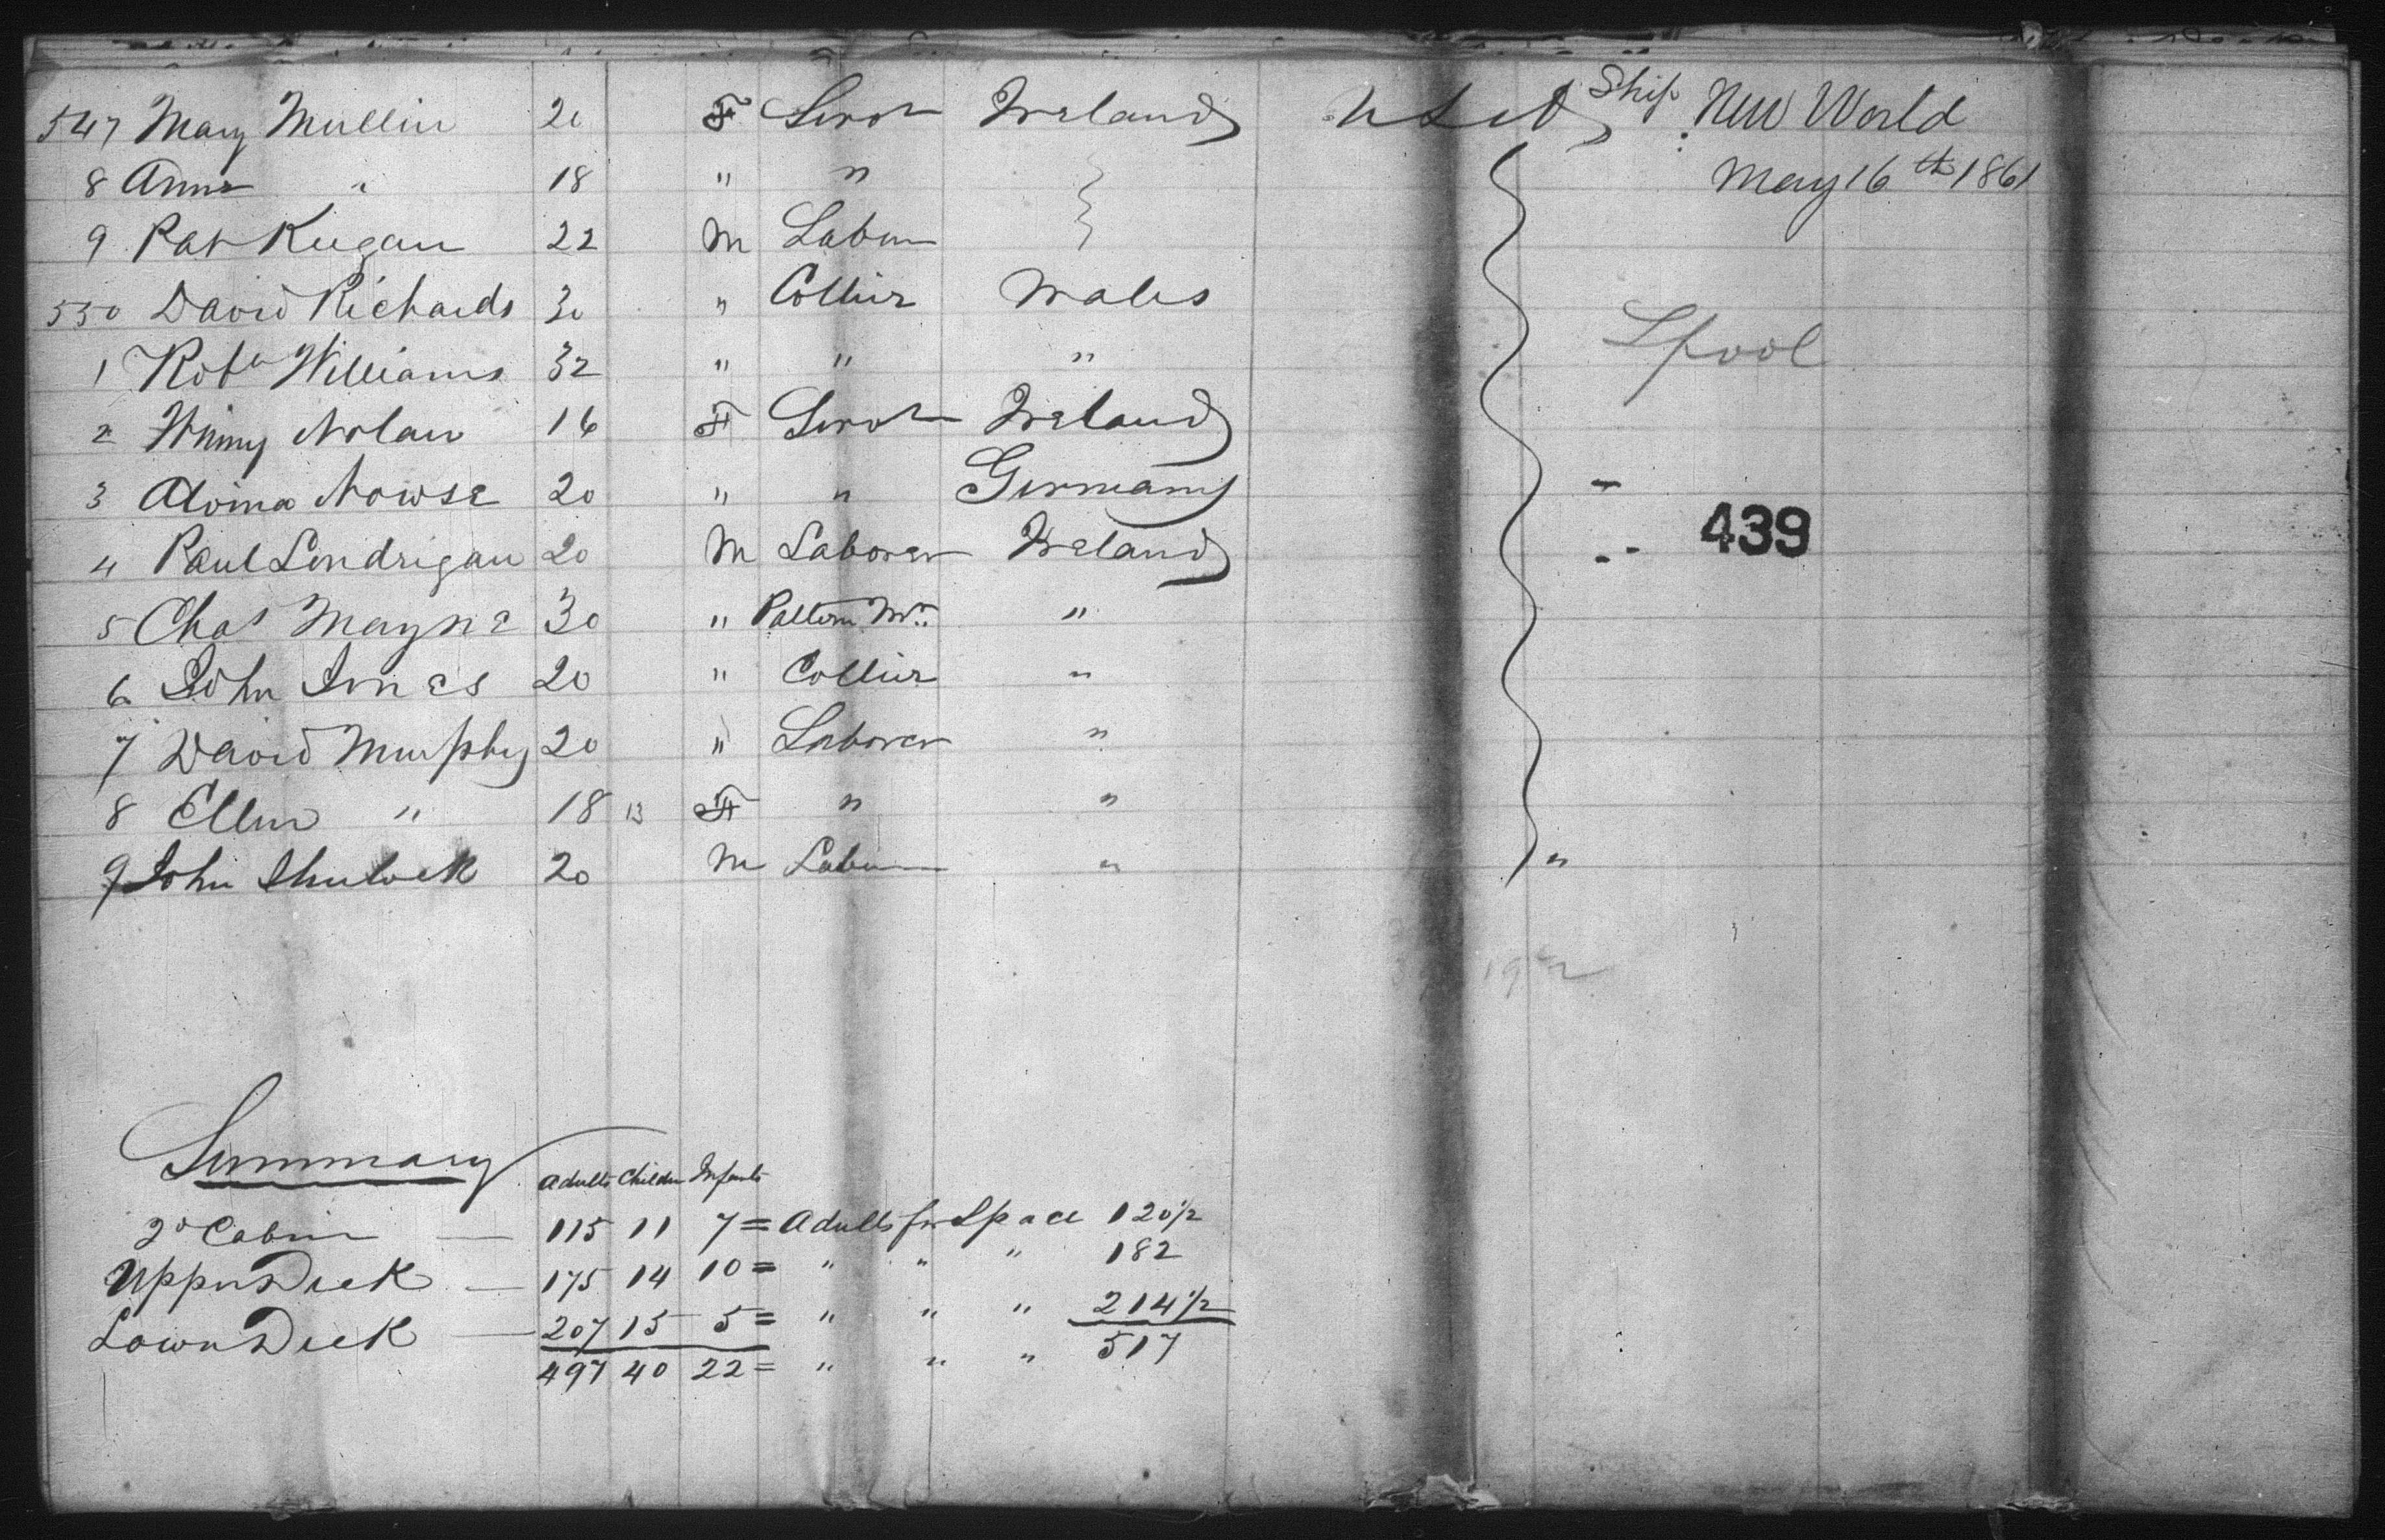 547 Mary Mullin 20 F Servt Ireland U S A Ship New World
8 Anne " 18 " " May 16th 1861
9 Pat Keegan 22 M Labor
550 David Richards 30 " Collier Wales Lpool
1 Robt Williams 32 " " "
2 Winny Nolan 16 F Servt Ireland
3 Nowse 20 " " Germany
4 Paul Londrigan 20 M Laborer Ireland 439
5 Chas Mayne 30 " Pattern Mr "
6 John Jones 20 " Collier "
7 David Murphy 20 " Laborer "
8 Ellen " 18 13 F " "
9 John 20 M Labor " "
Summary
Adults Childn Infants
2d Cabin — 115 11 7 = Adults for Space 120½
Upper Deck — 175 14 10 = " " " 182
Lower Deck — 207 15 5 = " " " 214½
497 40 22 = " " " 517